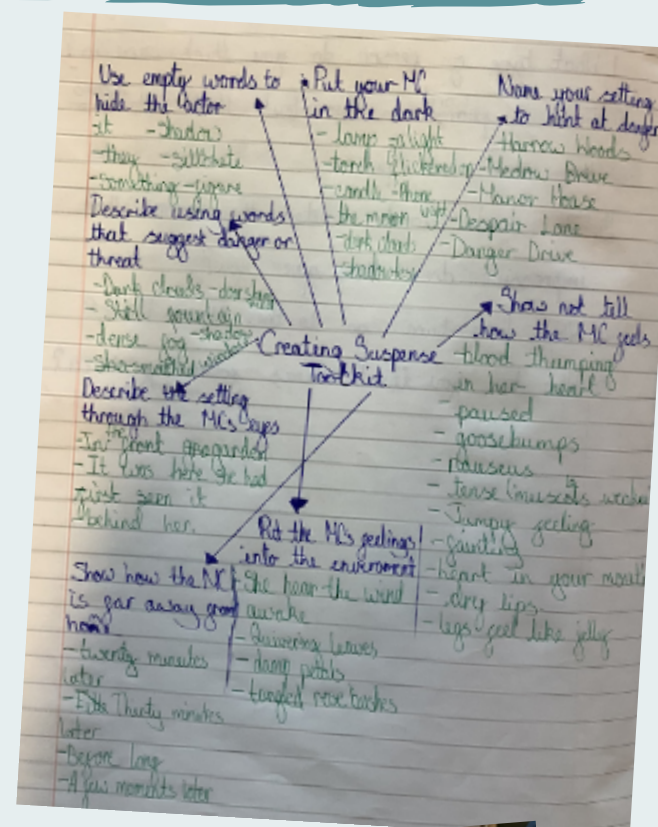 Use empty words to
hide the actor
-it -shadow
-they -sillohete
-something -figure
Put your MC
in the dark
- lamp -light
-torch flickered
-candle -Phone
-the moon light
-dark clouds
-shadows
Name your setting
to hint at danger
-Harrow Woods
-Medow Drive
-Manor House
-Despair Lane
-Danger Drive
Describe using words
that suggest danger or
threat
-Dark clouds
- Still fountain
-dense fog -shadow
Creating Suspense
Toolkit
Show not tell
how the MC feels
-blood thumping
in her heart
-paused
- goosebumps
- nauseus
- tense
- Jumpy feeling
- fainting
-heart in your mouth
- dry lips
-legs feel like jelly
Describe the setting
through the MCs eyes
-In the front garden
- It was here she had
first seen it
-behind her.
Put the MC's feelings
into the enviroment
-She hear the wind
awake
- Quivering leaves
- damp petals
- tangled rose bushes
Show how the MC
is far away from
home
- twenty minutes
later
- Thirty minutes
later
-Before long
-A few moments later